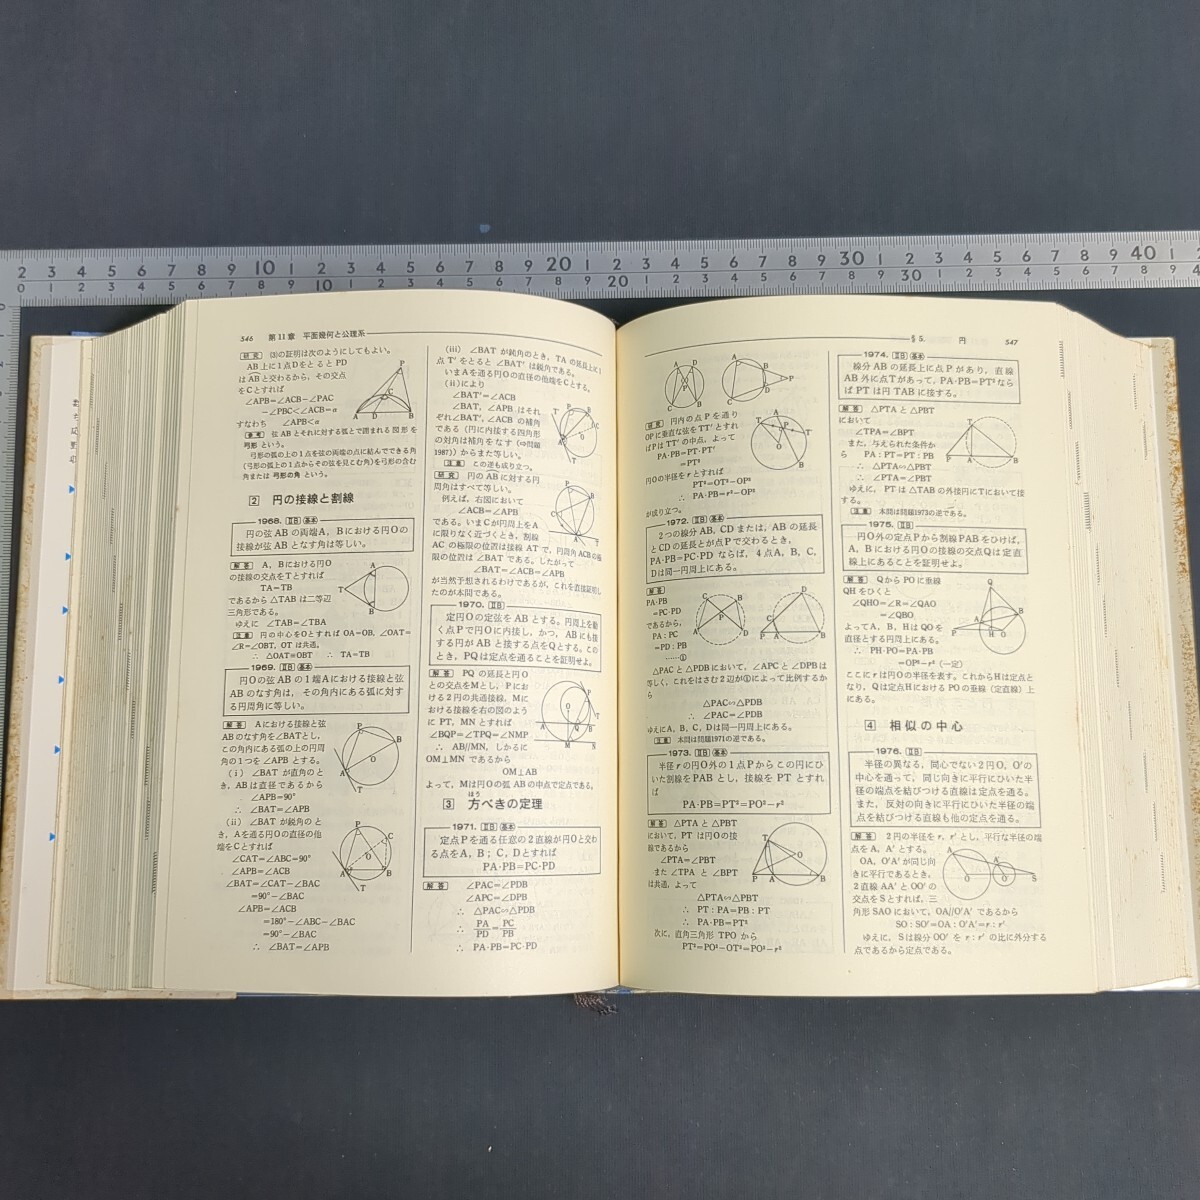 546 第11章 平面幾何と公理系
研究 (3)の証明は次のようにしてもよい。
AB上に1点DをとるとPD
はABと交わるから、その交点
をCとすれば
∠APB=∠ACB−∠PAC
−∠PBC<∠ACB=α
すなわち ∠APB<α
参考 弦ABとそれに対する弧とで囲まれる図形を
弓形という。
弓形の弧の上の1点を弦の両端の点に結んでできる角
(弓形の弧上の1点からその弦を見こむ角)を弓形の含む
角または弓形の角という。
2 円の接線と割線
1968. ⅡB 基本
円の弦ABの両端A,Bにおける円Oの
接線が弦ABとなす角は等しい。
解答 A,Bにおける円O
の接線の交点をTとすれば
TA=TB
であるから△TABは二等辺
三角形である。
ゆえに ∠TAB=∠TBA
注意 円の中心をOとすれば OA=OB,∠OAT=
∠R=∠OBT,OTは共通。
∴ △OAT≡OBT ∴ TA=TB
1969. ⅡB 基本
円Oの弦ABの1端Aにおける接線と弦
ABのなす角は、その角内にある弧に対す
る円周角に等しい。
解答 Aにおける接線と弦
ABのなす角を∠BATとし、
この角内にある弧の上の円周
角の1つを∠APBとする。
(i) ∠BATが直角のと
き、ABは直径であるから
∠APB=90°
∴ ∠BAT=∠APB
(ii) ∠BATが鋭角のと
き、Aを通る円Oの直径の他
端をCとすれば
∠CAT=∠ABC=90°
∠APB=∠ACB
∠BAT=∠CAT−∠BAC
=90°−∠BAC
∠APB=∠ACB
=180°−∠ABC−∠BAC
=90°−∠BAC
∴ ∠BAT=∠APB
(iii) ∠BATが鈍角のとき、TAの延長上に1
点T′をとると∠BAT′は鋭角である。
いまAを通る円Oの直径の他端をCとする。
(ii)により
∠BAT′=∠ACB
∠BAT,∠APBはそれ
ぞれ∠BAT′,∠ACBの補角
である(円に内接する四角形
の対角は補角をなす(⇨問題
1987))からまた等しい。
注意 この逆も成り立つ。
研究 円のABに対する円
周角はすべて等しい。
例えば、右図において
∠ACB=∠APB
である。いまCが円周上をA
に限りなく近づくとき、割線
ACの極限の位置は接線ATで、円周角ACBの極
限の位置は∠BATである。したがって
∠BAT=∠ACB=∠APB
が当然予想されるわけであるが、これを直接証明し
たのが本問である。
1970. ⅡB
定円Oの定弦をABとする。円周上を動
く点Pで円Oに内接し、かつ、ABにも接
する円がABと接する点をQとする。この
とき、PQは定点を通ることを証明せよ。
解答 PQの延長と円O
との交点をMとし、Pにお
ける2円の共通接線、Mに
おける接線を右の図のよう
にPT,MNとすれば
∠BQP=∠TPQ=∠NMP
∴ AB//MN,しかるに
OM⊥MNであるから
OM⊥AB
よって、Mは円Oの弧ABの中点で定点である。
3 方べきの定理
1971. ⅡB 基本
定点Pを通る任意の2直線が円Oと交わ
る点をA,B;C,Dとすれば
PA·PB=PC·PD
解答 ∠PAC=∠PDB
∠APC=∠DPB
∴ △PAC∽△PDB
∴ PA/PD=PC/PB
∴ PA·PB=PC·PD
§5. 円 547
研究 円内の点Pを通り
OPに垂直な弦をTT′とすれ
ばPはTT′の中点、よって
PA·PB=PT·PT′
=PT²
円Oの半径をrとすれば
PT²=OT²−OP²
∴ PA·PB=r²−OP²
が成り立つ。
1972. ⅡB 基本
2つの線分AB,CDまたは、ABの延長
とCDの延長とが点Pで交わるとき、
PA·PB=PC·PDならば、4点A,B,C,
Dは同一円周上にある。
解答
PA·PB
=PC·PD
であるから、
PA:PC
=PD:PB
……①
△PACと△PDBにおいて、∠APCと∠DPBは
等しく、これをはさむ2辺が①によって比例するか
ら
△PAC∽△PDB
∴ ∠PAC=∠PDB
ゆえにA,B,C,Dは同一円周上にある。
注意 本問は問題1971の逆である。
1973. ⅡB 基本
半径rの円O外の1点Pからこの円にひ
いた割線をPABとし、接線をPTとすれ
ば
PA·PB=PT²=PO²−r²
解答 △PTAと△PBT
において、PTは円Oの接
線であるから
∠PTA=∠PBT
また∠TPAと∠BPT
は共通、よって
△PTA∽△PBT
∴ PT:PA=PB:PT
∴ PA·PB=PT²
次に、直角三角形TPOから
PT²=PO²−OT²=PO²−r²
1974. ⅡB 基本
線分ABの延長上に点Pがあり、直線
AB外に点Tがあって、PA·PB=PT²なら
ばPTは円TABに接する。
解答 △PTAと△PBT
において
∠TPA=∠BPT
また、与えられた条件か
ら PA:PT=PT:PB
∴ △PTA∽△PBT
∴ ∠PTA=∠PBT
ゆえに、PTは△TABの外接円にTにおいて接
する。
注意 本問は問題1973の逆である。
1975. ⅡB
円O外の定点Pから割線PABをひけば、
A,Bにおける円Oの接線の交点Qは定直
線上にあることを証明せよ。
解答 QからPOに垂線
QHをひくと
∠QHO=∠R=∠QAO
=∠QBO
よってA,B,HはQOを
直径とする円周上にある。
∴ PH·PO=PA·PB
=OP²−r²(一定)
ここにrは円Oの半径を表す。これからHは定点と
なり、Qは定点HにおけるPOの垂線(定直線)上に
にある。
4 相似の中心
1976. ⅡB
半径の異なる、同心でない2円O,O′の
中心を通って、同じ向きに平行にひいた半
径の端点を結びつける直線は定点を通る。
また、反対の向きに平行にひいた半径の端
点を結びつける直線も他の定点を通る。
解答 2円の半径をr,r′とし、平行な半径の端
点をA,A′とする。
OA,O′A′が同じ向
きに平行であるとき、
2直線AA′とOO′の
交点をSとすれば、三
角形SAOにおいて、OA//O′A′であるから
SO:SO′=OA:O′A′=r:r′
ゆえに、Sは線分OO′をr:r′の比に外分する
点であるから定点である。